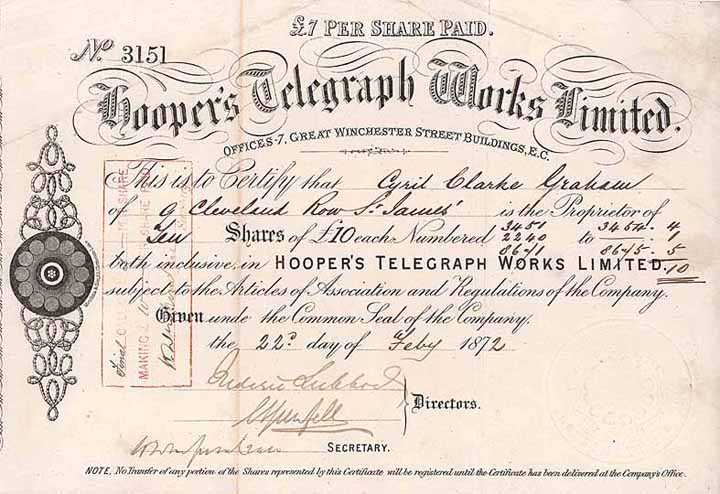 £7 PER SHARE PAID.
No. 3151
Hooper's Telegraph Works Limited.
OFFICES-7, GREAT WINCHESTER STREET BUILDINGS, E.C.
This is to Certify that Cyril Clarke Graham
of 9 Cleveland Row St. James' is the Proprietor of
3451 3454 - 4
Ten Shares of £10 each Numbered 2240 to - 1
8641 8645 - 5
both inclusive, in HOOPER'S TELEGRAPH WORKS LIMITED. 10
subject to the Articles of Association and Regulations of the Company.
Given under the Common Seal of the Company.
the 22d day of Feby 1872
Directors.
SECRETARY.
NOTE, No Transfer of any portion of the Shares represented by this Certificate will be registered until the Certificate has been delivered at the Company's Office.
SHARE
MAKING £ 10 SHARE